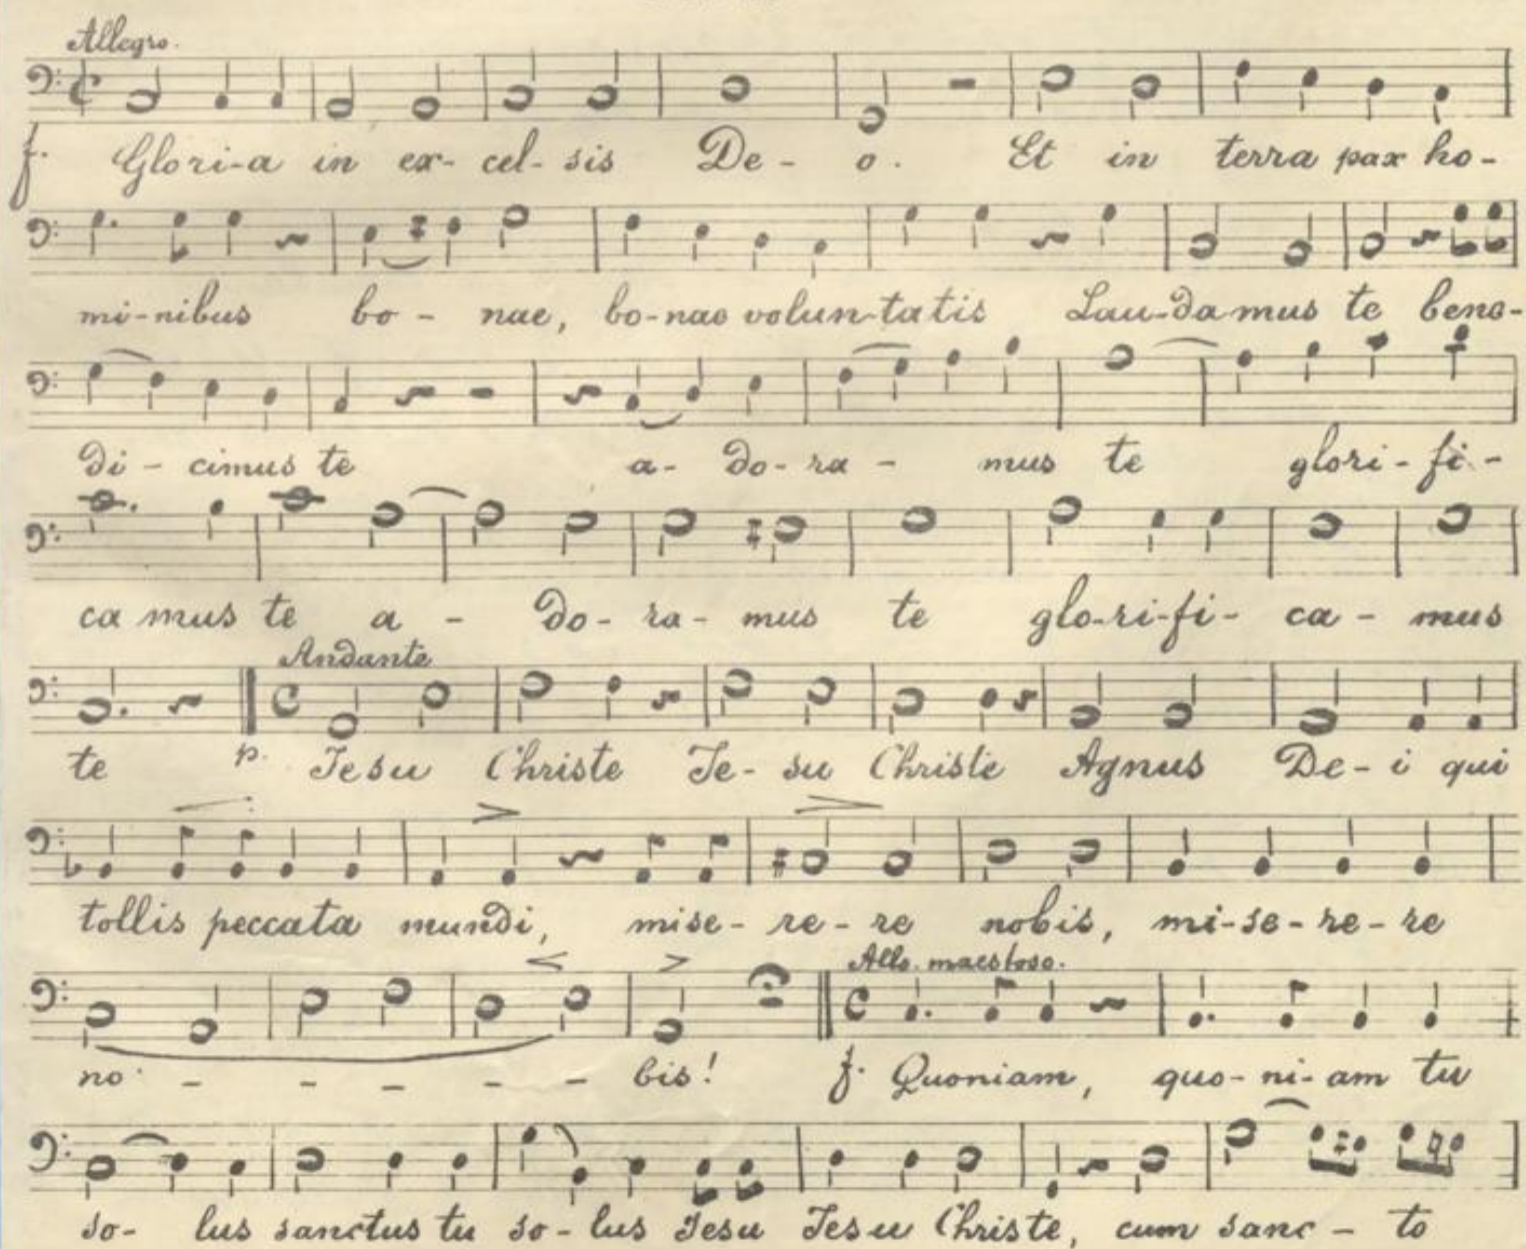 Allegro.
f. Glori-a in ex- cel- sis De - o. Et in terra pax ho-
mi-nibus bo - nae, bo-nae volun-tatis Lau-damus te bene-
di - cimus te a- do-ra - mus te glori-fi-
ca mus te a - do-ra-mus te glo-ri-fi- ca - mus
Andante
te p. Jesu Christe Je- su Christe Agnus De-i qui
tollis peccata mundi, mise-re-re nobis, mi-se-re-re
Allo. maestoso.
no - - - - - bis! f. Quoniam, quo-ni-am tu
so- lus sanctus tu so-lus Jesu Jesu Christe, cum sanc - to